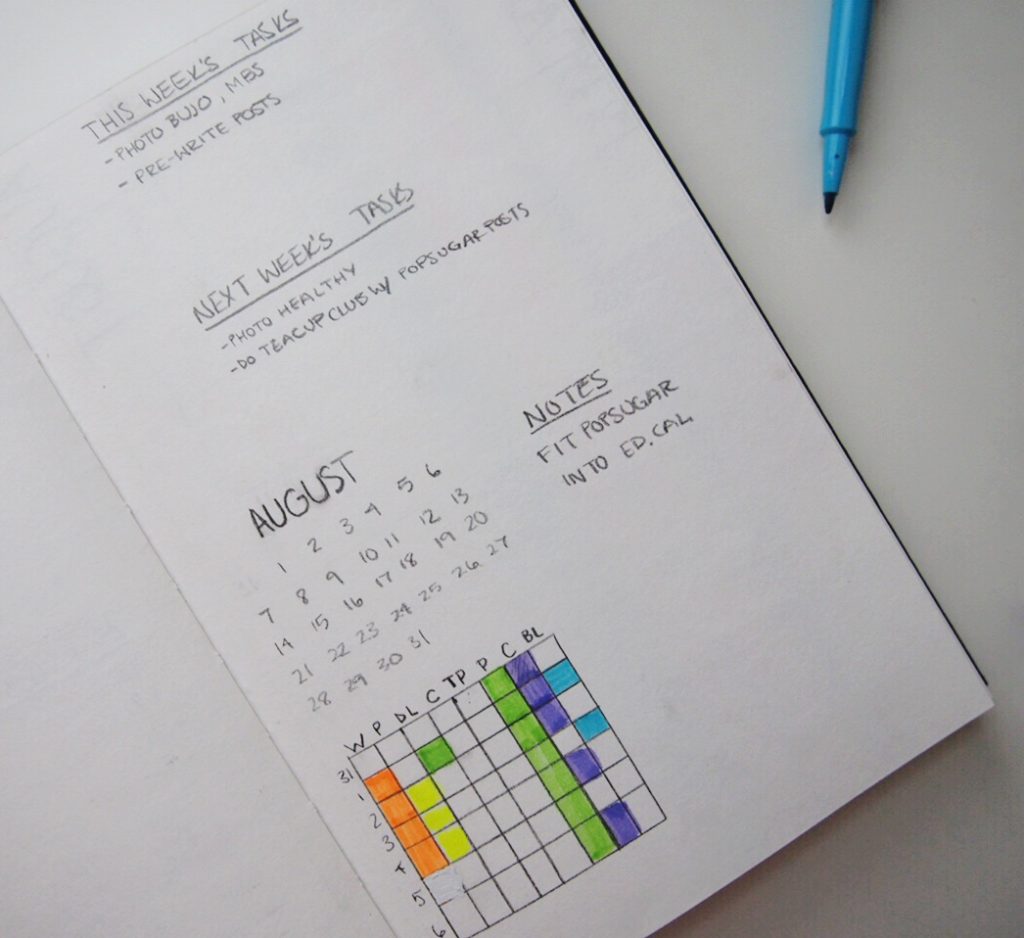 THIS WEEK'S TASKS
-PHOTO BUJO, MBS
- PRE-WRITE POSTS
NEXT WEEK'S TASKS
-PHOTO HEALTHY
-DO TEACUP CLUB W/ POPSUGAR POSTS
NOTES
FIT POPSUGAR
INTO ED.CAL
AUGUST
1 2 3 4 5 6
7 8 9 10 11 12 13
14 15 16 17 18 19 20
21 22 23 24 25 26 27
28 29 30 31
W P DL C TP P C BL
31
1
2
3
4
5
6